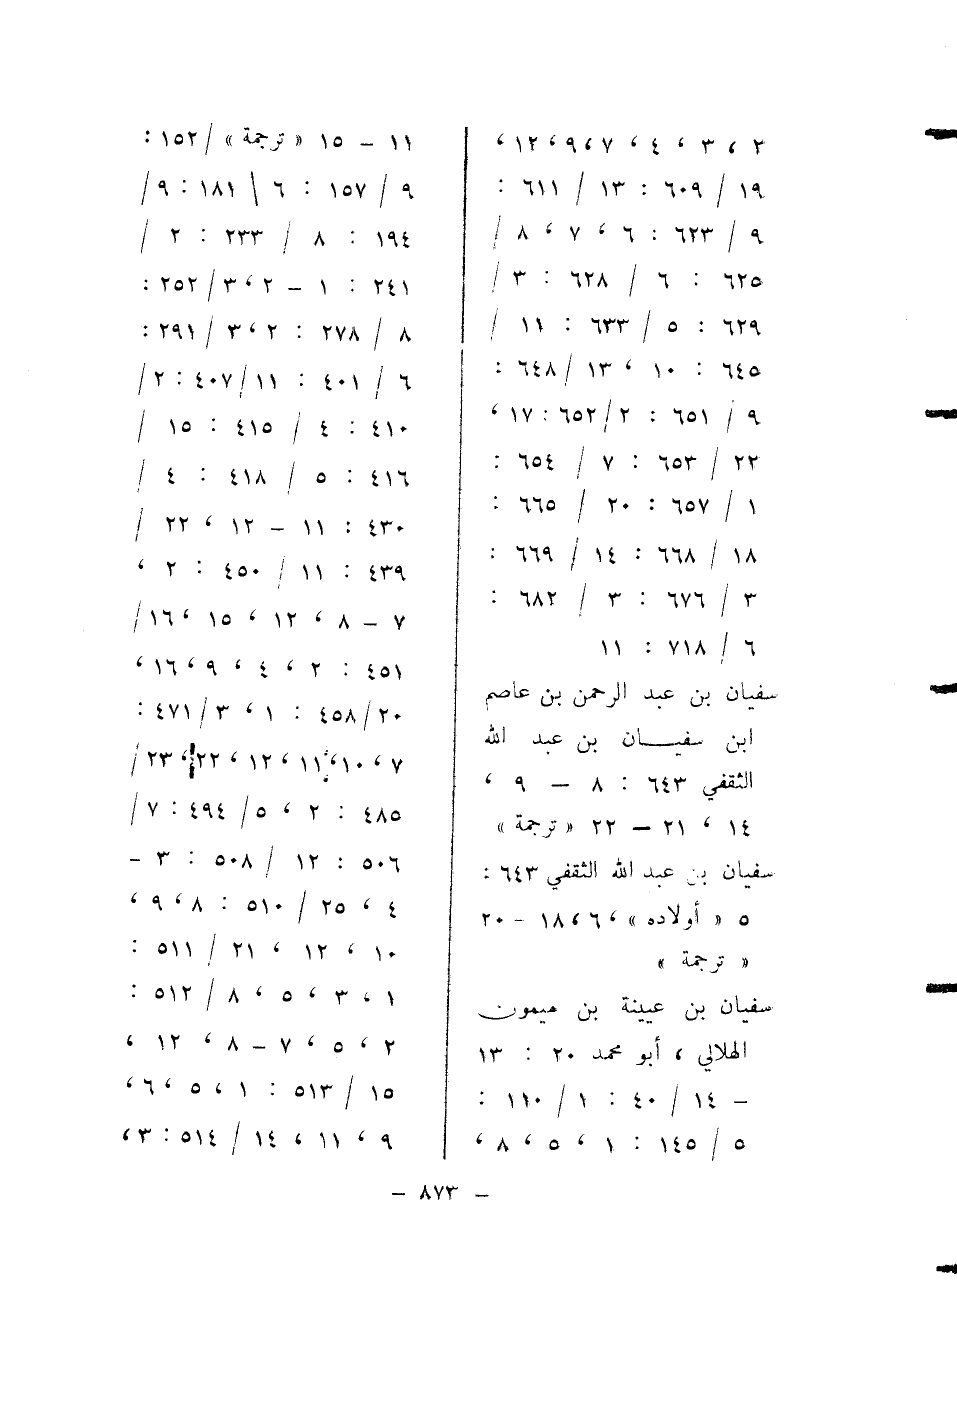 ٢ ، ٣ ، ٤ ، ٧ ، ٩ ، ١٢ ،
١٩ / ٦٠٩ : ١٣ / ٦١١ :
٩ / ٦٢٣ : ٦ ، ٧ ، ٨ /
٦٢٥ : ٦ / ٦٢٨ : ٣ /
٦٢٩ : ٥ / ٦٣٣ : ١١ /
٦٤٥ : ١٠ ، ١٣ / ٦٤٨ :
٩ / ٦٥١ : ٢ / ٦٥٢ : ١٧ ،
٢٢ / ٦٥٣ : ٧ / ٦٥٤ :
١ / ٦٥٧ : ٢٠ / ٦٦٥ :
١٨ / ٦٦٨ : ١٤ / ٦٦٩ :
٣ / ٦٧٦ : ٣ / ٦٨٢ :
٦ / ٧١٨ : ١١
سفيان بن عبد الرحمن بن عاصم
ابن سفيـــان بن عبد الله
الثقفي ٦٤٣ : ٨ – ٩ ،
١٤ ، ٢١ – ٢٢ « ترجمة »
سفيان بن عبد الله الثقفي ٦٤٣ :
٥ « أولاده » ، ٦ ، ١٨ - ٢٠
« ترجمة »
سفيان بن عيينة بن ميمون
الهلالي ، أبو محمد ٢٠ : ١٣
– ١٤ / ٤٠ : ١ / ١١٠ :
٥ / ١٤٥ : ١ ، ٥ ، ٨ ،
١١ – ١٥ « ترجمة » / ١٥٢ :
٩ / ١٥٧ : ٦ \ ١٨١ : ٩ /
١٩٤ : ٨ / ٢٣٣ : ٢ /
٢٤١ : ١ – ٢ ، ٣ / ٢٥٢ :
٨ / ٢٧٨ : ٢ ، ٣ / ٢٩١ :
٦ / ٤٠١ : ١١ / ٤٠٧ : ٢ /
٤١٠ : ٤ / ٤١٥ : ١٥ /
٤١٦ : ٥ / ٤١٨ : ٤ /
٤٣٠ : ١١ – ١٢ ، ٢٢ /
٤٣٩ : ١١ / ٤٥٠ : ٢ ،
٧ – ٨ ، ١٢ ، ١٥ ، ١٦ /
٤٥١ : ٢ ، ٤ ، ٩ ، ١٦ ،
٢٠ / ٤٥٨ : ١ ، ٣ / ٤٧١ :
٧ ، ١٠ ، ١١ ، ١٢ ، ٢٢ ، ٢٣ /
٤٨٥ : ٢ ، ٥ / ٤٩٤ : ٧ /
٥٠٦ : ١٢ / ٥٠٨ : ٣ –
٤ ، ٢٥ / ٥١٠ : ٨ ، ٩ ،
١٠ ، ١٢ ، ٢١ / ٥١١ :
١ ، ٣ ، ٥ ، ٨ / ٥١٢ :
٢ ، ٥ ، ٧ – ٨ ، ١٢ ،
١٥ / ٥١٣ : ١ ، ٥ ، ٦ ،
٩ ، ١١ ، ١٤ / ٥١٤ : ٣ ،
– ٨٧٣ –